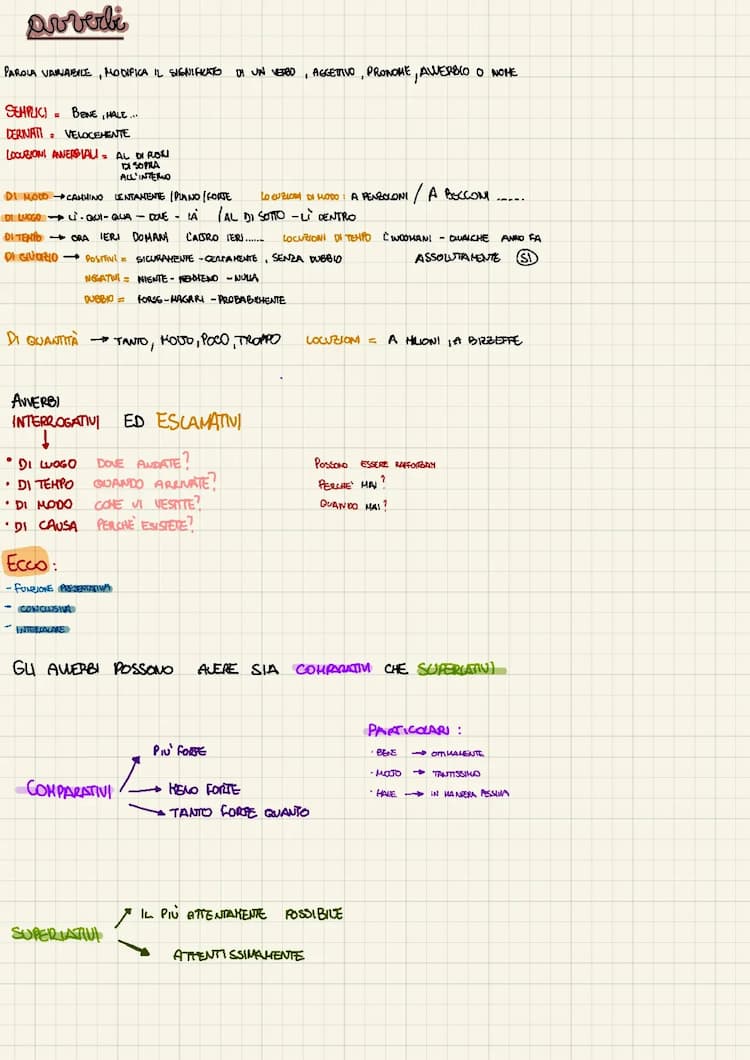 avverbi
PAROLA VARIABILE, MODIFICA IL SIGNIFICATO DI UN VERBO, AGGETTIVO, PRONOME, AVVERBIO O NOME
SEMPLICI = BENE, MALE...
DERIVATI = VELOCEMENTE
LOCUZIONI AVVERBIALI = AL DI FUORI
DI SOPRA
ALL'INTERNO
DI MODO → CAMMINO LENTAMENTE / PIANO / FORTE LOCUZIONI DI MODO: A PENZOLONI / A BOCCONI .....
DI LUOGO → LÌ - QUI - QUA - DOVE - LÀ / AL DI SOTTO - LÌ DENTRO
DI TEMPO → ORA IERI DOMANI L'ALTRO IERI...... LOCUZIONI DI TEMPO L'INDOMANI - QUALCHE ANNO FA
DI GIUDIZIO → POSITIVI = SICURAMENTE - CERTAMENTE, SENZA DUBBIO ASSOLUTAMENTE SI
NEGATIVI = NIENTE - NEMMENO - NULLA
DUBBIO = FORSE - MAGARI - PROBABILMENTE
DI QUANTITÀ → TANTO, MOLTO, POCO, TROPPO LOCUZIONI = A MILIONI, A BIZZEFFE
AVVERBI
INTERROGATIVI ED ESCLAMATIVI
• DI LUOGO DOVE ANDATE? POSSONO ESSERE RAFFORZATI
• DI TEMPO QUANDO ARRIVATE? PERCHÈ MAI?
• DI MODO COME VI VESTITE? QUANDO MAI?
• DI CAUSA PERCHÈ ESISTETE?
ECCO:
- FUNZIONE PRESENTATIVA
- CONCLUSIVA
- INTERCALARE
GLI AVVERBI POSSONO AVERE SIA COMPARATIVI CHE SUPERLATIVI
PARTICOLARI:
PIÙ FORTE
• BENE → OTTIMAMENTE
• MOLTO → TANTISSIMO
COMPARATIVI → MENO FORTE
• MALE → IN MANIERA PESSIMA
TANTO FORTE QUANTO
IL PIÙ ATTENTAMENTE POSSIBILE
SUPERLATIVI
ATTENTISSIMAMENTE